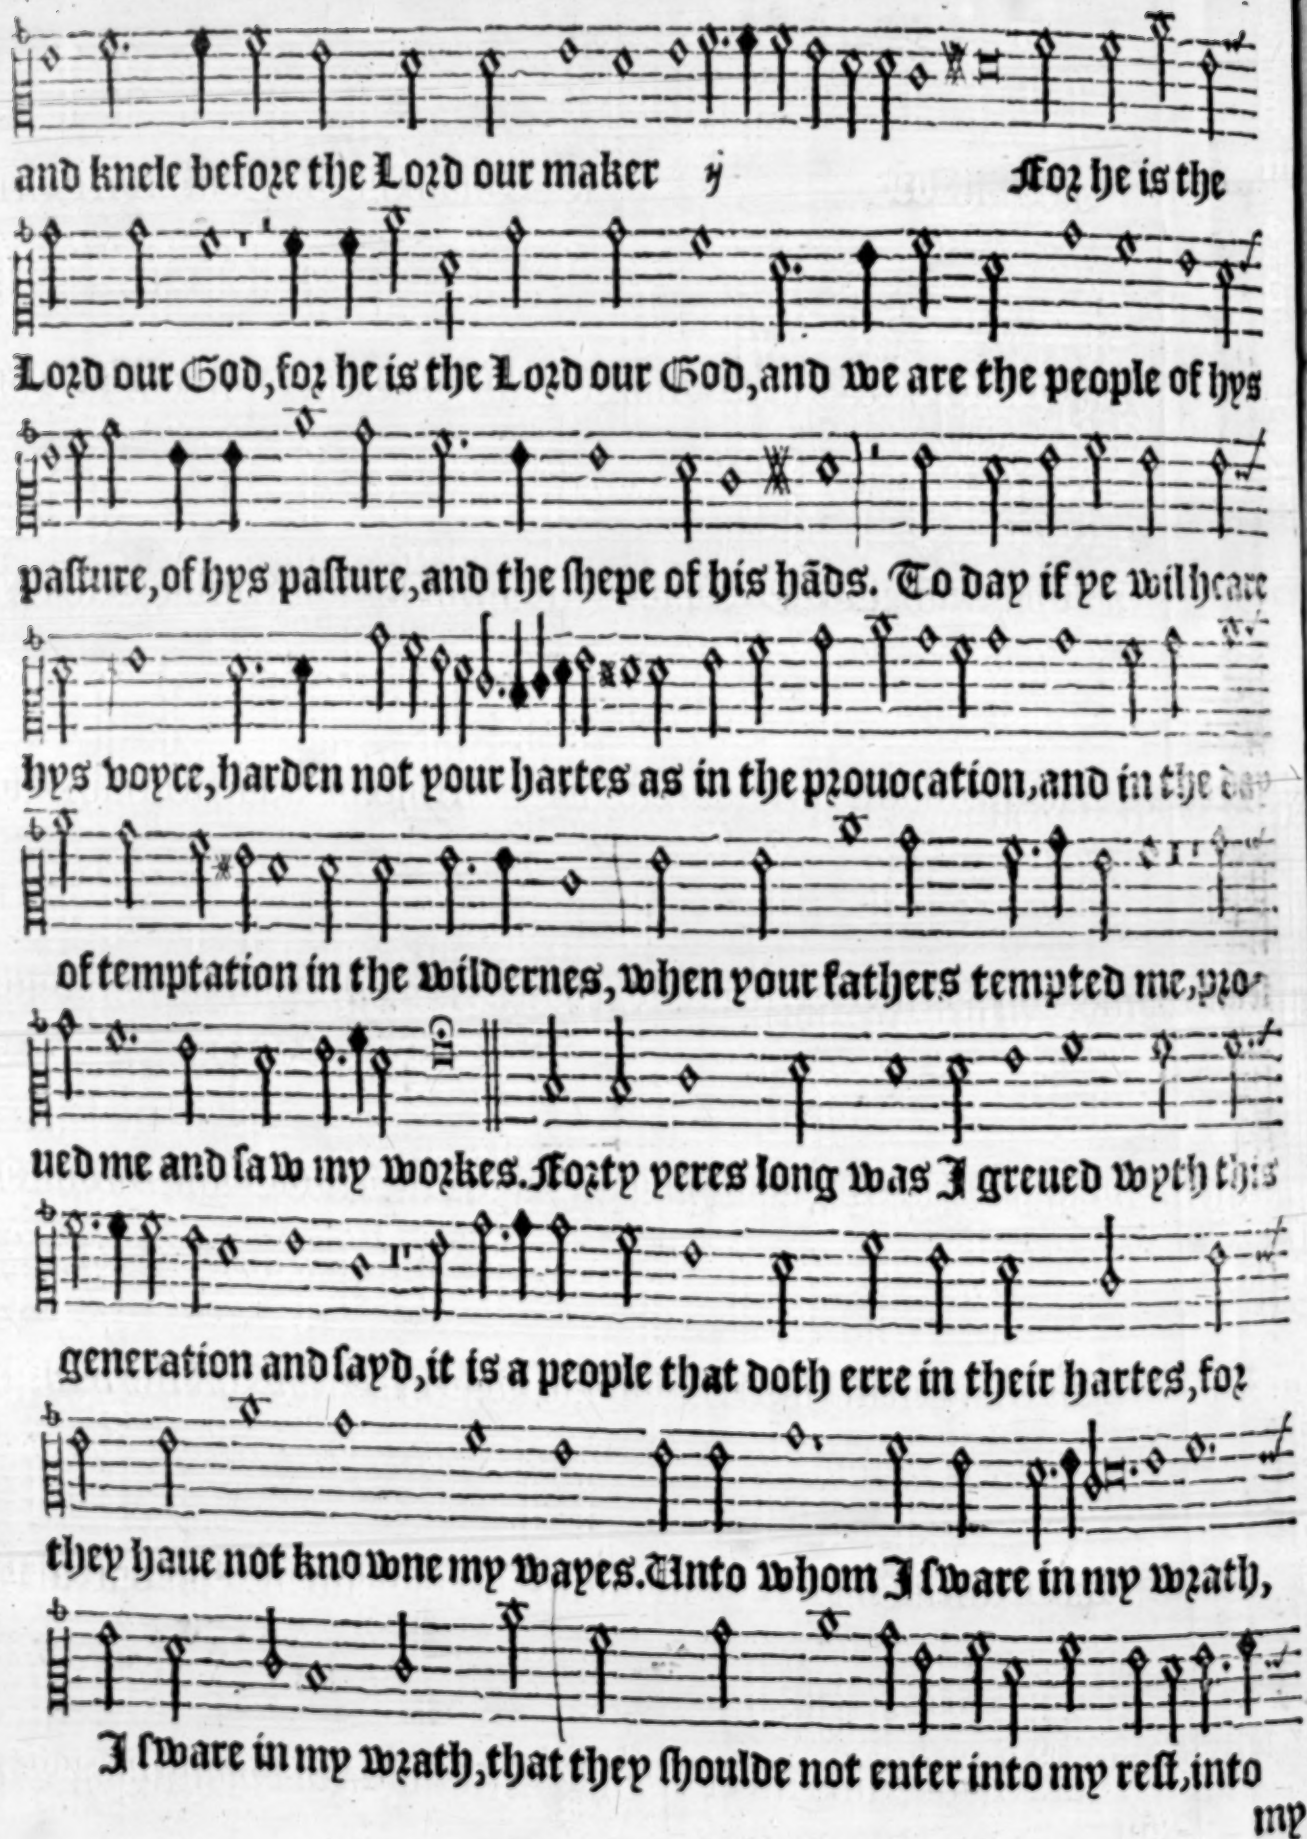 and knele before the Lord our maker ij For he is the
Lord our God, for he is the Lord our God, and we are the people of hys
pasture, of hys pasture, and the shepe of his hāds. To day if ye wil heare
hys voyce, harden not your hartes as in the prouocation, and in the day
of temptation in the wildernes, when your fathers tempted me, pro-
ued me and saw my workes. Forty yeres long was I greued wyth this
generation and sayd, it is a people that doth erre in their hartes, for
they haue not knowne my wayes. Unto whom I sware in my wrath,
I sware in my wrath, that they shoulde not enter into my rest, into
my